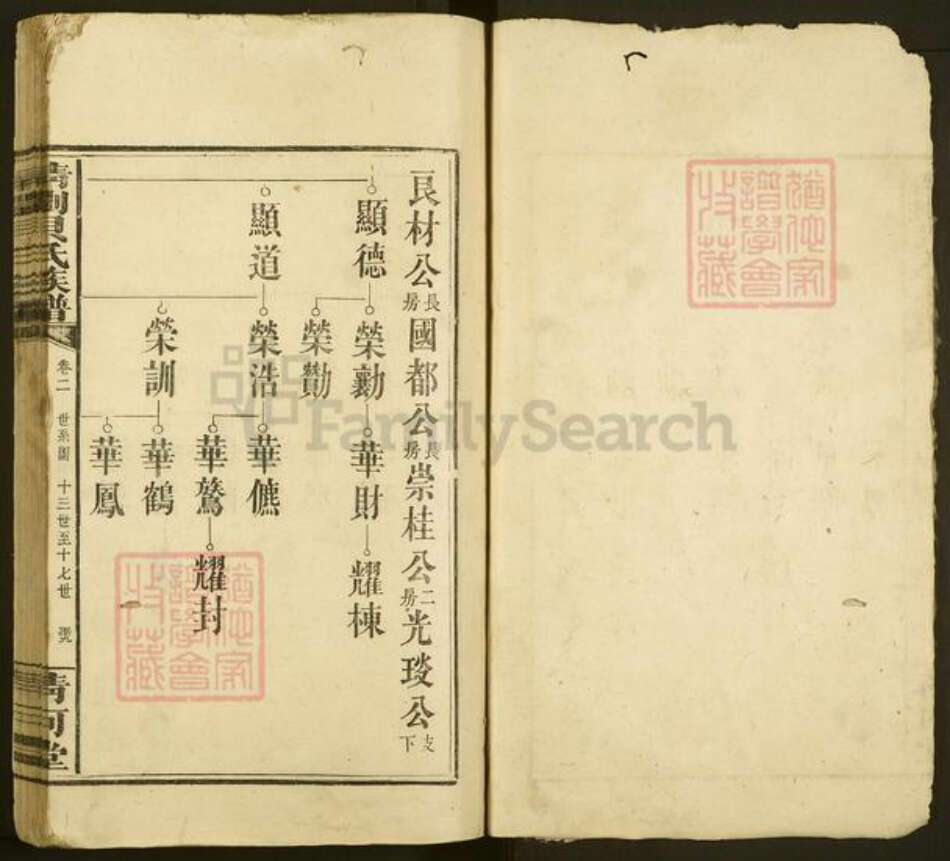 良材公長房國都公長房崇桂公二房光琰公支下
顯德
榮勷
華財
耀棟
榮勩
顯道
榮浩
華僬
華鷟
耀封
榮訓
華鶴
華鳳
氏族譜
卷二 世系圖 十三世至十七世
清河堂
猶他家
譜學會
收藏
猶他家
譜學會
收藏
FamilySearch